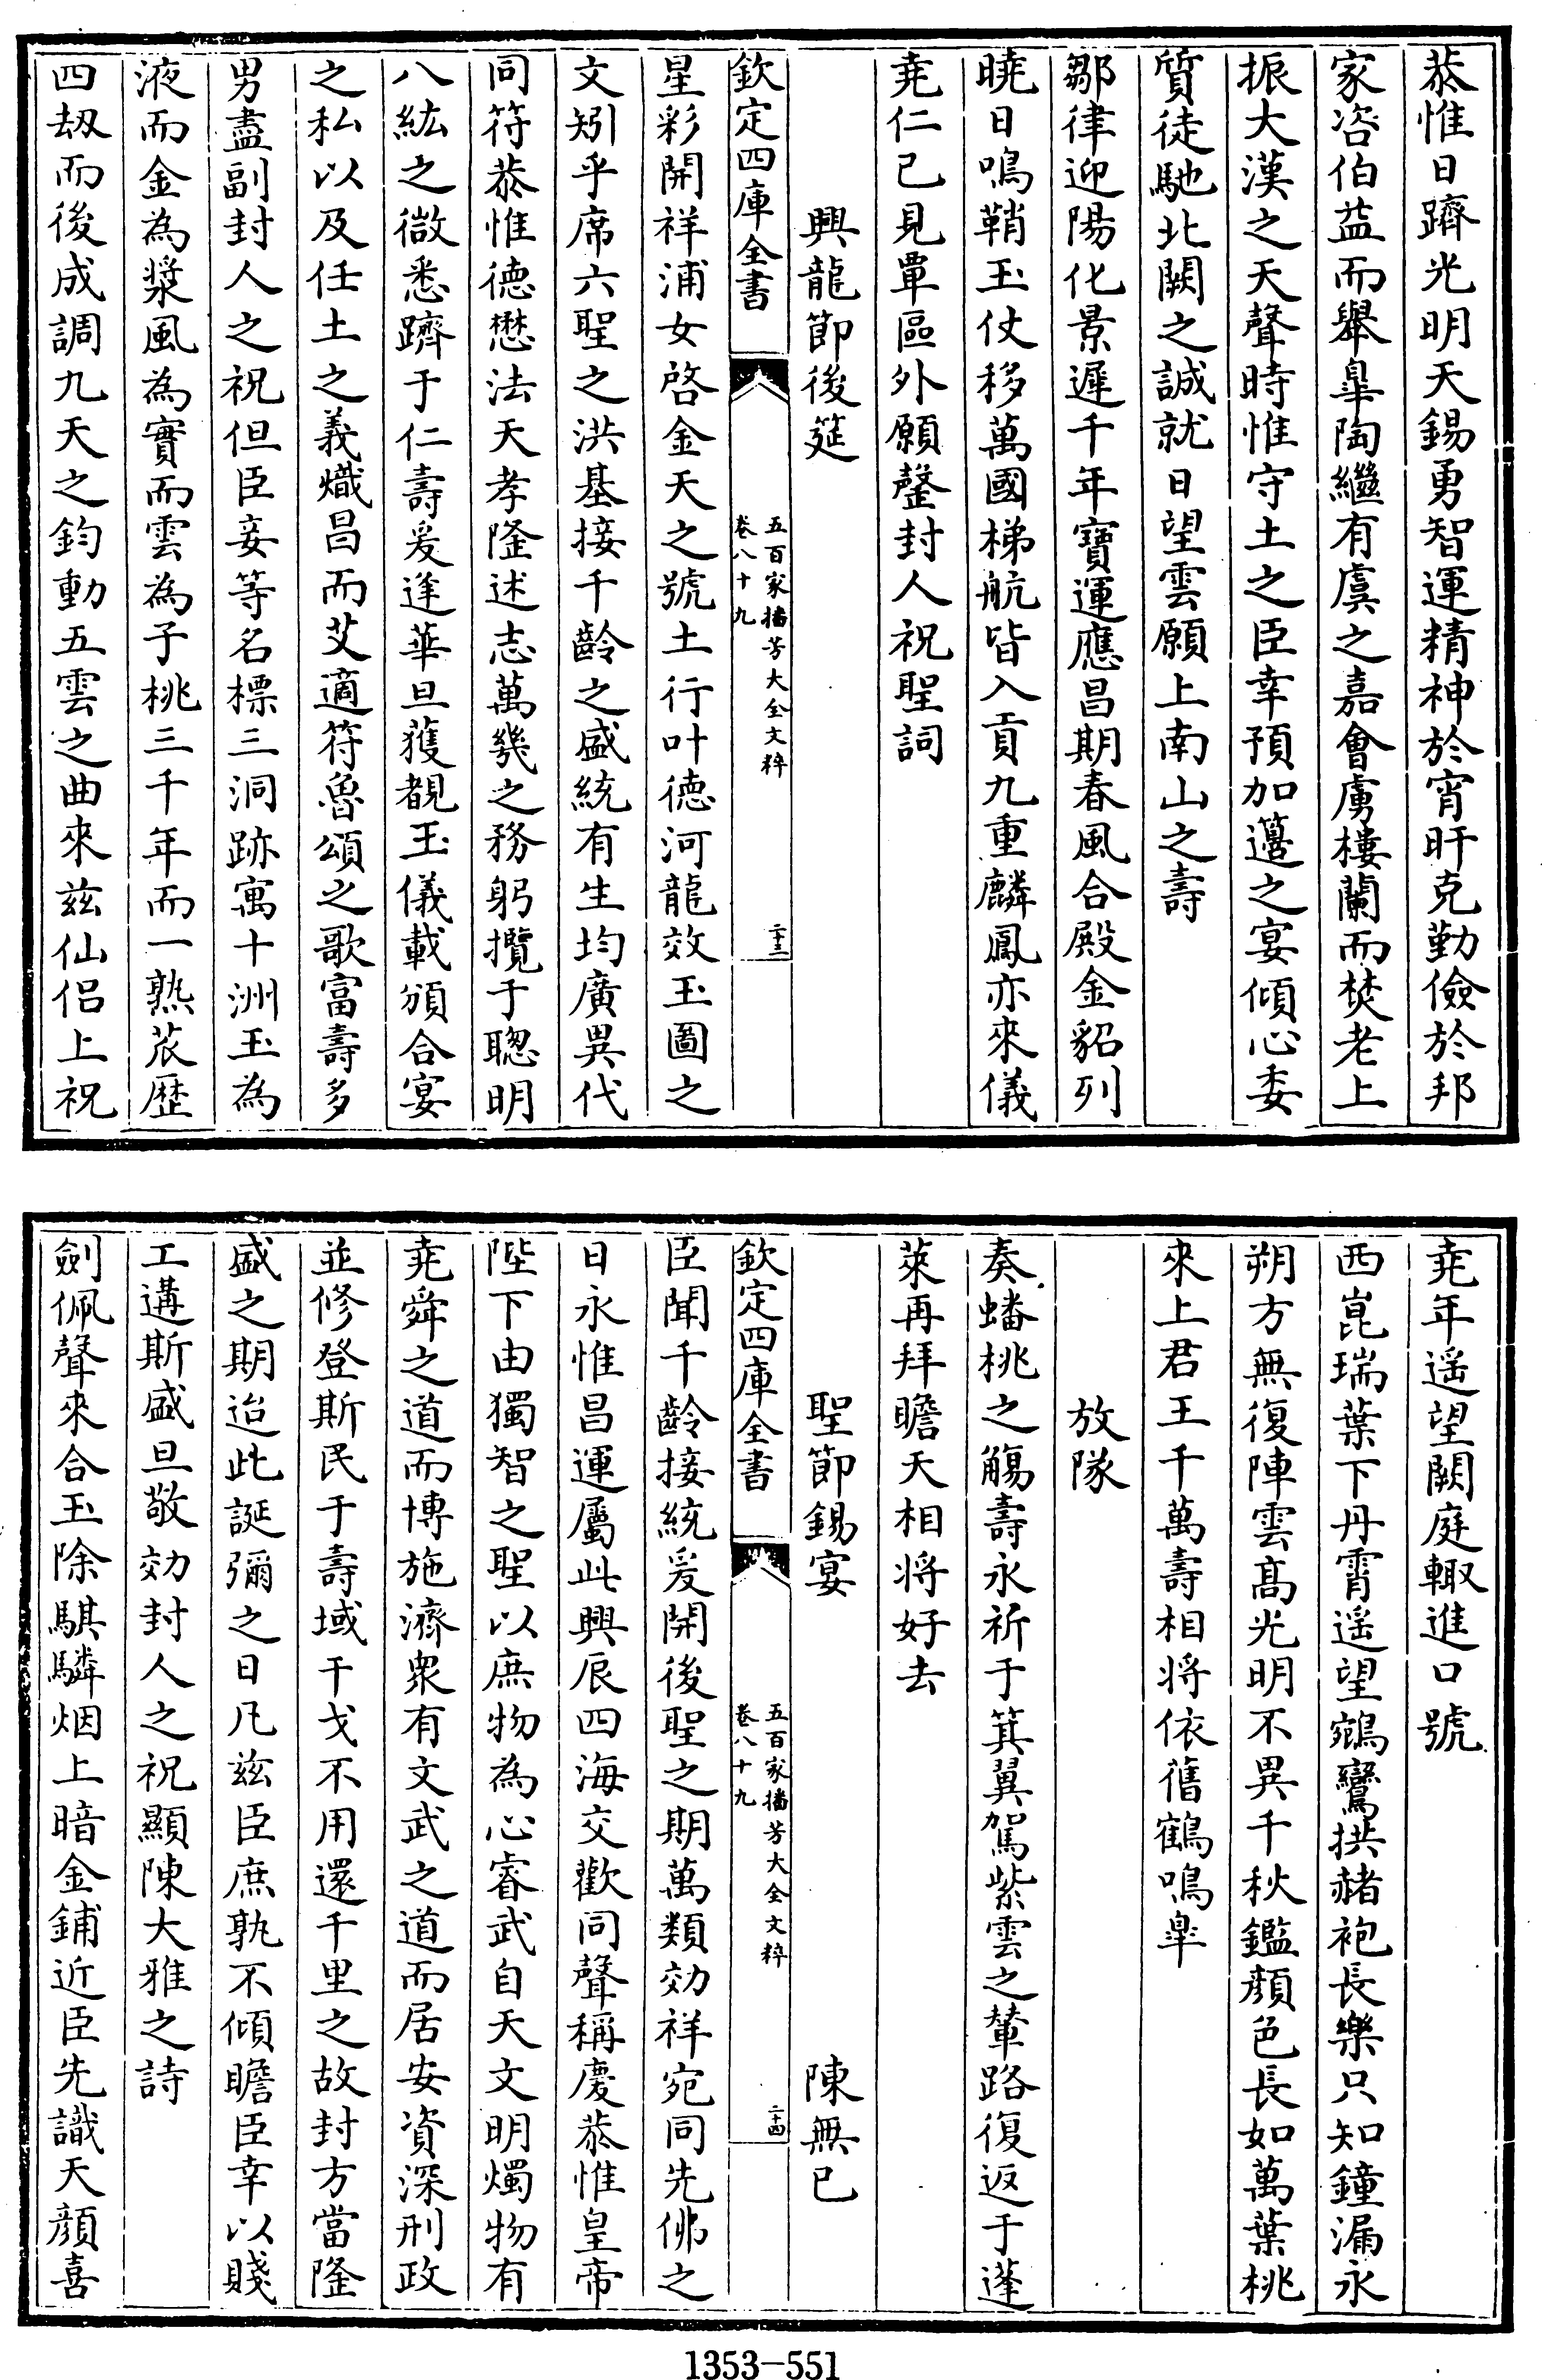 恭惟日躋光明天錫勇智運精神於宵旰克勤儉於邦
家咨伯益而舉皐陶繼有虞之嘉會虜樓蘭而焚老上
振大漢之天聲時惟守土之臣幸預加籩之宴傾心委
質徒馳北闕之誠就日望雲願上南山之壽
鄒律迎陽化景遲千年寶運應昌期春風合殿金貂列
曉日鳴鞘玉仗移萬國梯航皆入貢九重麟鳳亦來儀
堯仁已見覃區外願罄封人祝聖詞
興龍節後筵
欽定四庫全書
五百家播芳大全文粹
卷八十九
二十三
星彩開祥浦女啓金天之號土行叶德河龍效玉圖之
文矧乎席六聖之洪基接千齡之盛統有生均廣異代
同符恭惟德懋法天孝隆述志萬幾之務躬攬于聰明
八紘之微悉躋于仁壽爰逢華旦獲覩玉儀載頒合宴
之私以及任土之義熾昌而艾適符魯頌之歌富壽多
男盡副封人之祝但臣妾等名標三洞跡寓十洲玉為
液而金為漿風為實而雲為子桃三千年而一熟苽歷
四刼而後成調九天之鈞動五雲之曲來兹仙侶上祝
堯年遥望闕庭輙進口號
西崑瑞葉下丹霄遥望鵷鸞拱赭袍長樂只知鐘漏永
朔方無復陣雲髙光明不異千秋鑑顔色長如萬葉桃
來上君王千萬壽相将依舊鶴鳴臯
放隊
奏蟠桃之觴壽永祈于箕翼駕紫雲之輦路復返于蓬
萊再拜瞻天相将好去
聖節錫宴
陳無已
欽定四庫全書
五百家播芳大全文粹
卷八十九
二十四
臣聞千齡接統爰開後聖之期萬類効祥宛同先佛之
日永惟昌運屬此興辰四海交歡同聲稱慶恭惟皇帝
陛下由獨智之聖以庶物為心睿武自天文明燭物有
堯舜之道而博施濟衆有文武之道而居安資深刑政
並修登斯民于壽域干戈不用還千里之故封方當隆
盛之期迨此誕彌之日凡兹臣庶孰不傾瞻臣幸以賤
工遘斯盛旦敬効封人之祝顯陳大雅之詩
劍佩聲來合玉除騏驎烟上暗金鋪近臣先識天顔喜
1353-551